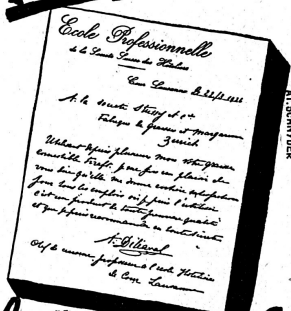 Ecole Professionnelle
de la Société Suisse des Hôteliers
Cour Lausanne
A la Société Stüssy & Cie
Fabrique de graisse et margarine
Zurich
Utilisant depuis plusieurs mois votre graisse
comestible je me fais un plaisir de
vous dire qu'elle me donne entière satisfaction
pour tous les emplois où je puis l'utiliser
c'est un produit de toute première qualité
et que je puis recommander en toute
A.
Chef de cuisine, professeur à l'école Hôtelière
de Cour Lausanne